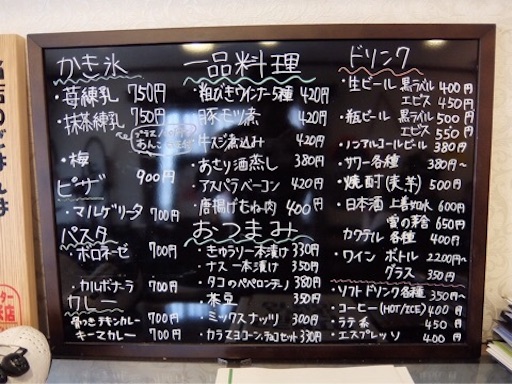 かき氷
・苺練乳 750円
抹茶練乳 750円
プラス
あんこ
・梅 900円
ピザ
・マルゲリータ 700円
パスタ
・ボロネーゼ 700円
・カルボナーラ 700円
カレー
骨つきチキンカレー 700円
キーマカレー 700円
一品料理
・粗びきウインナー5種 420円
・豚モツ煮 420円
・牛スジ煮込み 420円
・あさり酒蒸し 380円
・アスパラベーコン 420円
・唐揚げむね肉 400円
おつまみ
・きゅうり一本漬け 330円
・ナス一本漬け 350円
・タコのペペロンチーノ 380円
・茶豆 350円
・ミックスナッツ 300円
・カラマヨコーン、チョコセット 330円
ドリンク
・生ビール 黒ラベル 400円
エビス 450円
・瓶ビール 黒ラベル 500円
エビス 550円
・ノンアルコールビール 380円
・サワー各種 380円〜
・焼酎(麦・芋) 500円
・日本酒 上善如水 600円
雪の茅舎 650円
カクテル各種 400円
・ワイン ボトル 2200円〜
グラス 350円
・ソフトドリンク各種 350円〜
・コーヒー(HOT/ICE) 400円
・ラテ系 450円
・エスプレッソ 400円
当店のごはんは